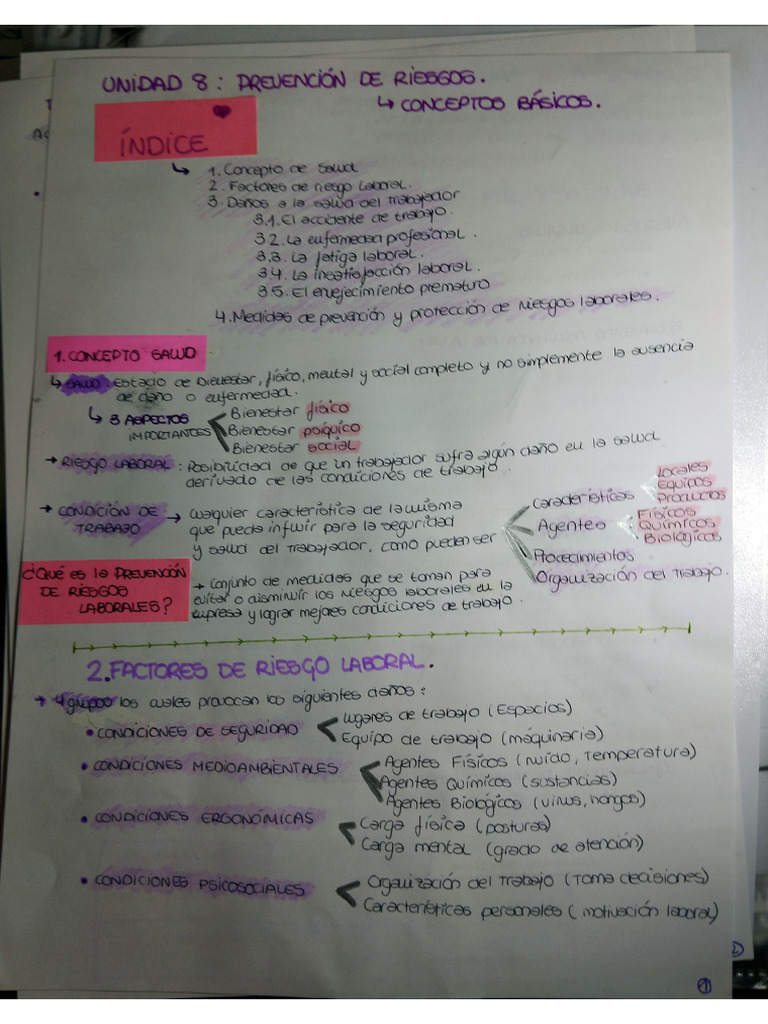 UNIDAD 8: PREVENCIÓN DE RIESGOS.
↳ CONCEPTOS BÁSICOS.
ÍNDICE
↳ 1. Concepto de Salud
2. Factores de riesgo Laboral.
3. Daños a la salud del Trabajador
3.1. El accidente de trabajo.
3.2. La enfermedad profesional.
3.3. La fatiga laboral.
3.4. La insatisfacción laboral.
3.5. El envejecimiento prematuro
4. Medidas de prevención y protección de riesgos laborales.
1. CONCEPTO SALUD
↳ SALUD: Estado de bienestar, físico, mental y social completo y no simplemente la ausencia
de daño o enfermedad.
↳ 3 ASPECTOS IMPORTANTES
Bienestar físico
Bienestar psíquico
Bienestar social
→ RIESGO LABORAL: Posibilidad de que un trabajador sufra algún daño en la salud
derivado de las condiciones de trabajo.
→ CONDICIÓN DE TRABAJO → Cualquier característica de la misma
que pueda influir para la seguridad
y salud del trabajador, como pueden ser
Características
Locales
Equipos
Productos
Agentes
Físicos
Químicos
Biológicos
Procedimientos
Organización del Trabajo.
¿QUÉ ES LA PREVENCIÓN
DE RIESGOS
LABORALES?
→ Conjunto de medidas que se toman para
evitar o disminuir los riesgos laborales en la
empresa y lograr mejores condiciones de trabajo.
2. FACTORES DE RIESGO LABORAL.
→ 4 grupos los cuales provocan los siguientes daños:
• CONDICIONES DE SEGURIDAD
Lugares de trabajo (Espacios)
Equipo de trabajo (máquinaria)
• CONDICIONES MEDIOAMBIENTALES
Agentes Físicos (ruido, Temperatura)
Agentes Químicos (sustancias)
Agentes Biológicos (virus, hongos)
• CONDICIONES ERGONÓMICAS
Carga física (posturas)
Carga mental (grado de atención)
• CONDICIONES PSICOSOCIALES
Organización del Trabajo (Toma decisiones)
Características personales (motivación laboral)
2
1